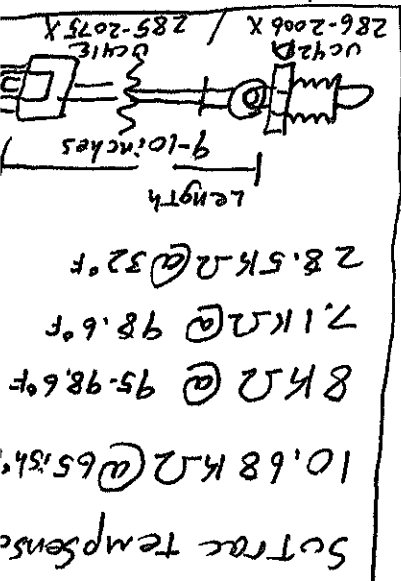 SuTrac TempSenso
10.68KΩ @65ish°
8KΩ @ 95-98.6°F
7.1KΩ @ 98.6°F
28.5KΩ @ 32°F
Length
9-10inches
UC41E
285-2075X / 286-2006X